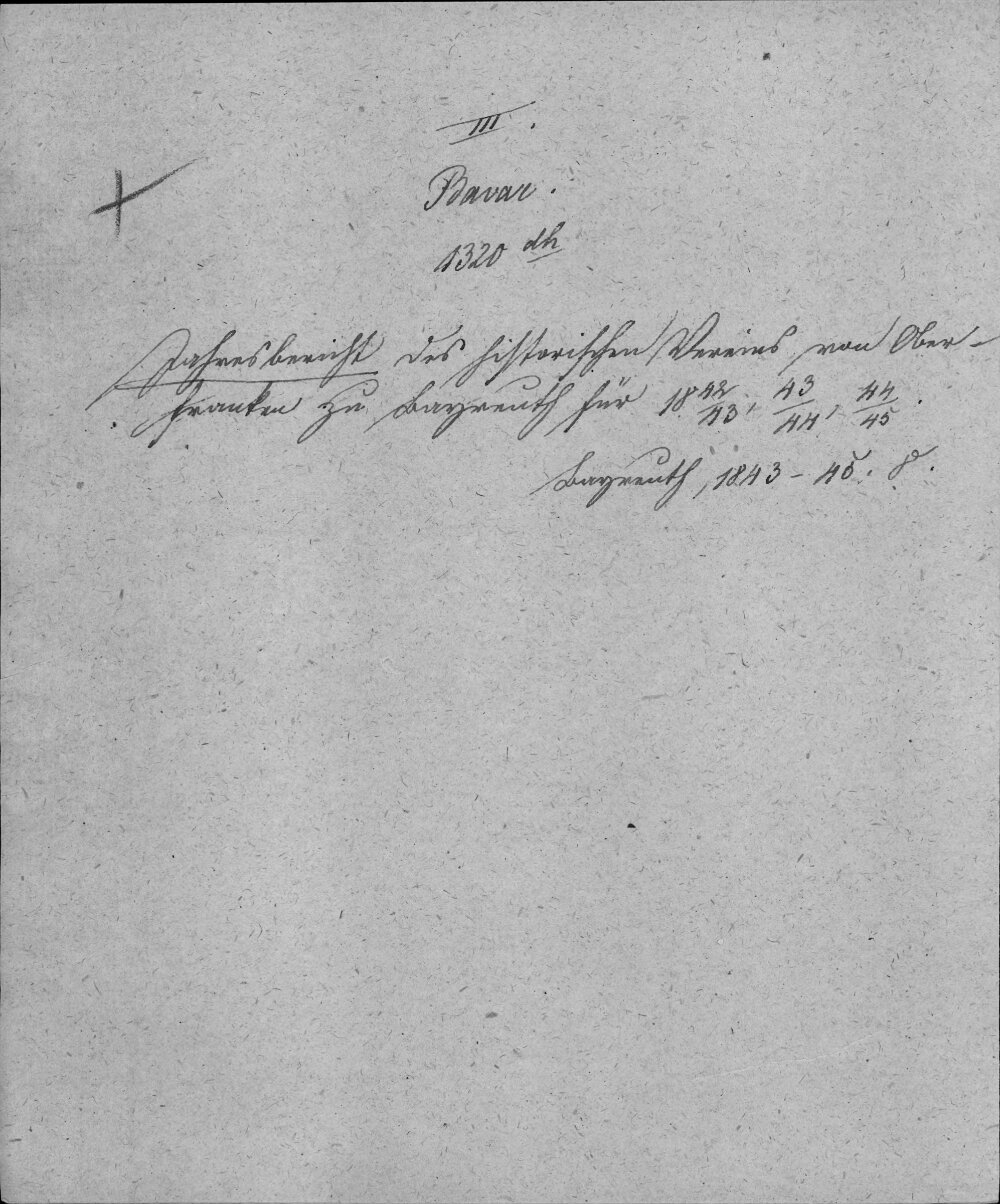 III.
Bavar.
1320 dh
Jahresbericht des historischen Vereins von Ober-
franken zu Bayreuth für 18 42/43, 43/44, 44/45.
Bayreuth, 1843-45. 8.